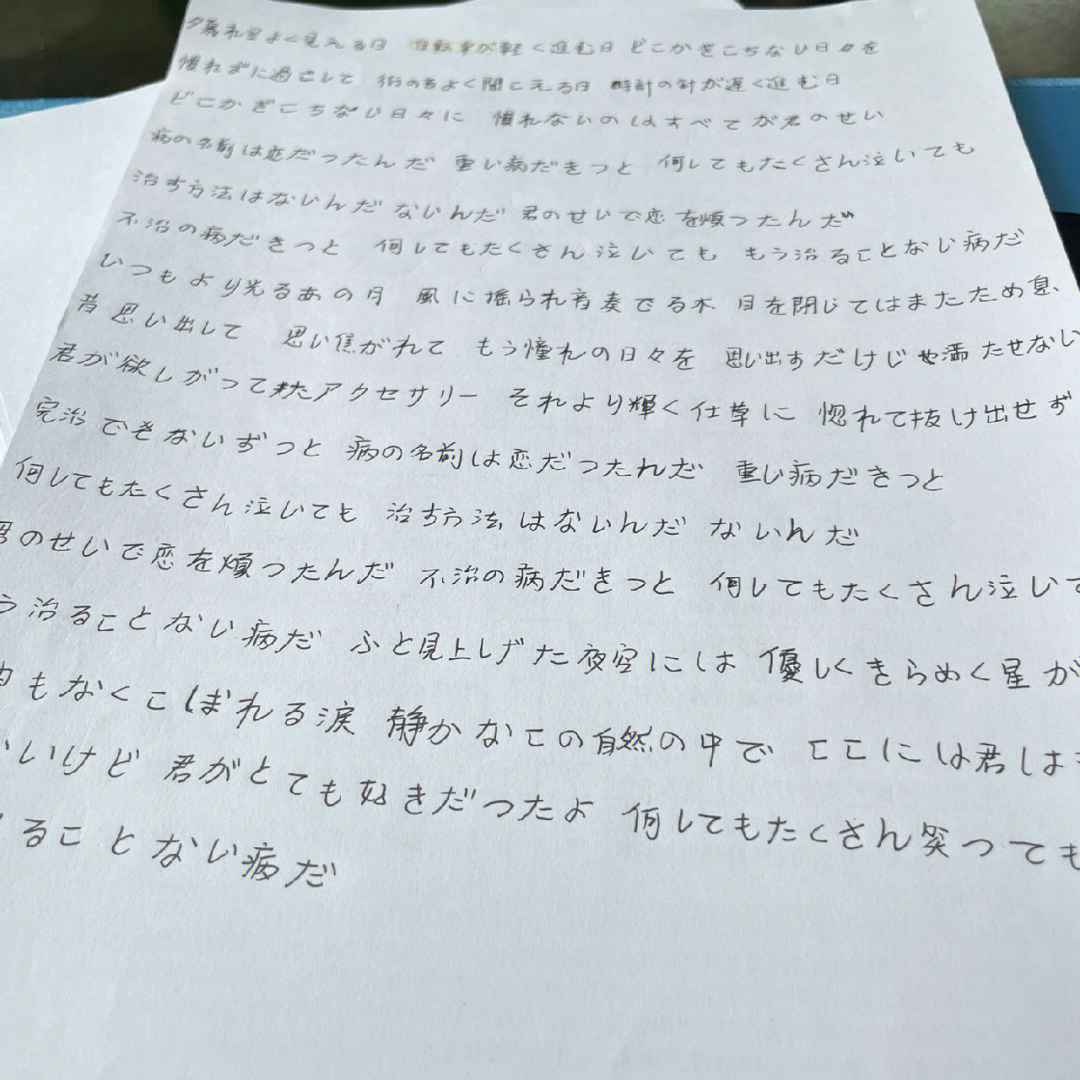 夕暮れ空よく見える日 自転車が軽く進む日 どこかぎこちない日々を
慣れずに過ごして 街の音よく聞こえる日 時計の針が遅く進む日
どこかぎこちない日々に 慣れないのはすべてが君のせい
病の名前は恋だったんだ 重い病だきっと 何してもたくさん泣いても
治す方法はないんだ ないんだ 君のせいで恋を煩ったんだ
不治の病だきっと 何してもたくさん泣いても もう治ることない病だ
いつもより光るあの月 風に揺られ音奏でる木 目を閉じてはまたため息、
昔思い出して 思い焦がれて もう憧れの日々を 思い出すだけじゃ満たせない
君が欲しがってたアクセサリー それより輝く仕草に 惚れて抜け出せず
完治できないずっと 病の名前は恋だったんだ 重い病だきっと
何してもたくさん泣いても 治す方法はないんだ ないんだ
君のせいで恋を煩ったんだ 不治の病だきっと 何してもたくさん泣いて
う治ることない病だ ふと見上げた夜空には 優しくきらめく星が
もなくこぼれる涙 静かなこの自然の中で ここには君は
いけど 君がとても好きだったよ 何してもたくさん笑っても
ることない病だ